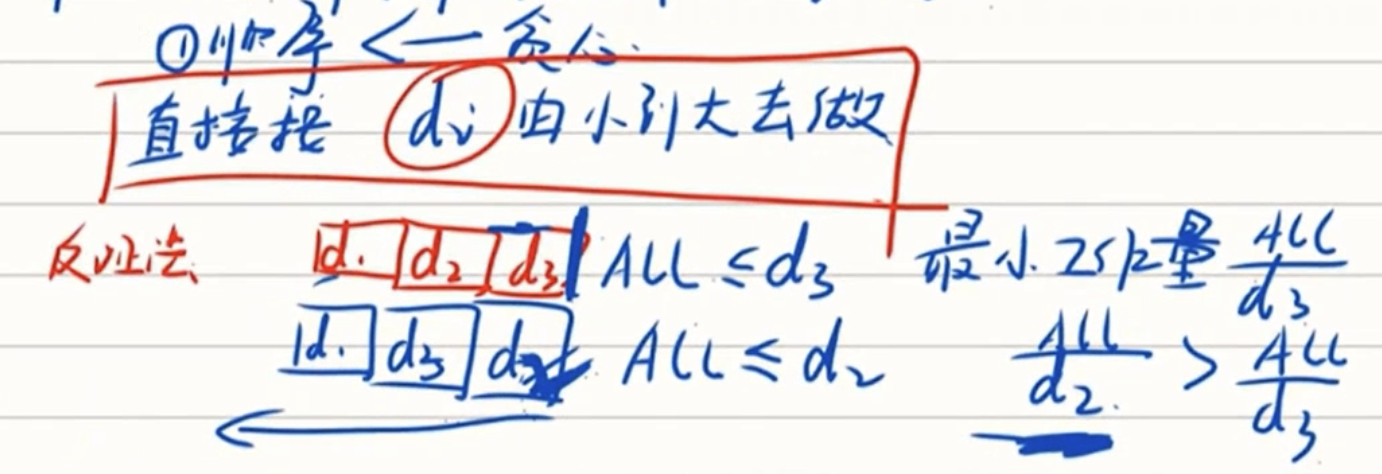 ①顺序 ← 贪心.
直接按 di 由小到大去做
反证法 d1 d2 d3 ALL ≤ d3 最小 能量 ALL/d3
d1 d3 d2 ALL ≤ d2 ALL/d2 > ALL/d3